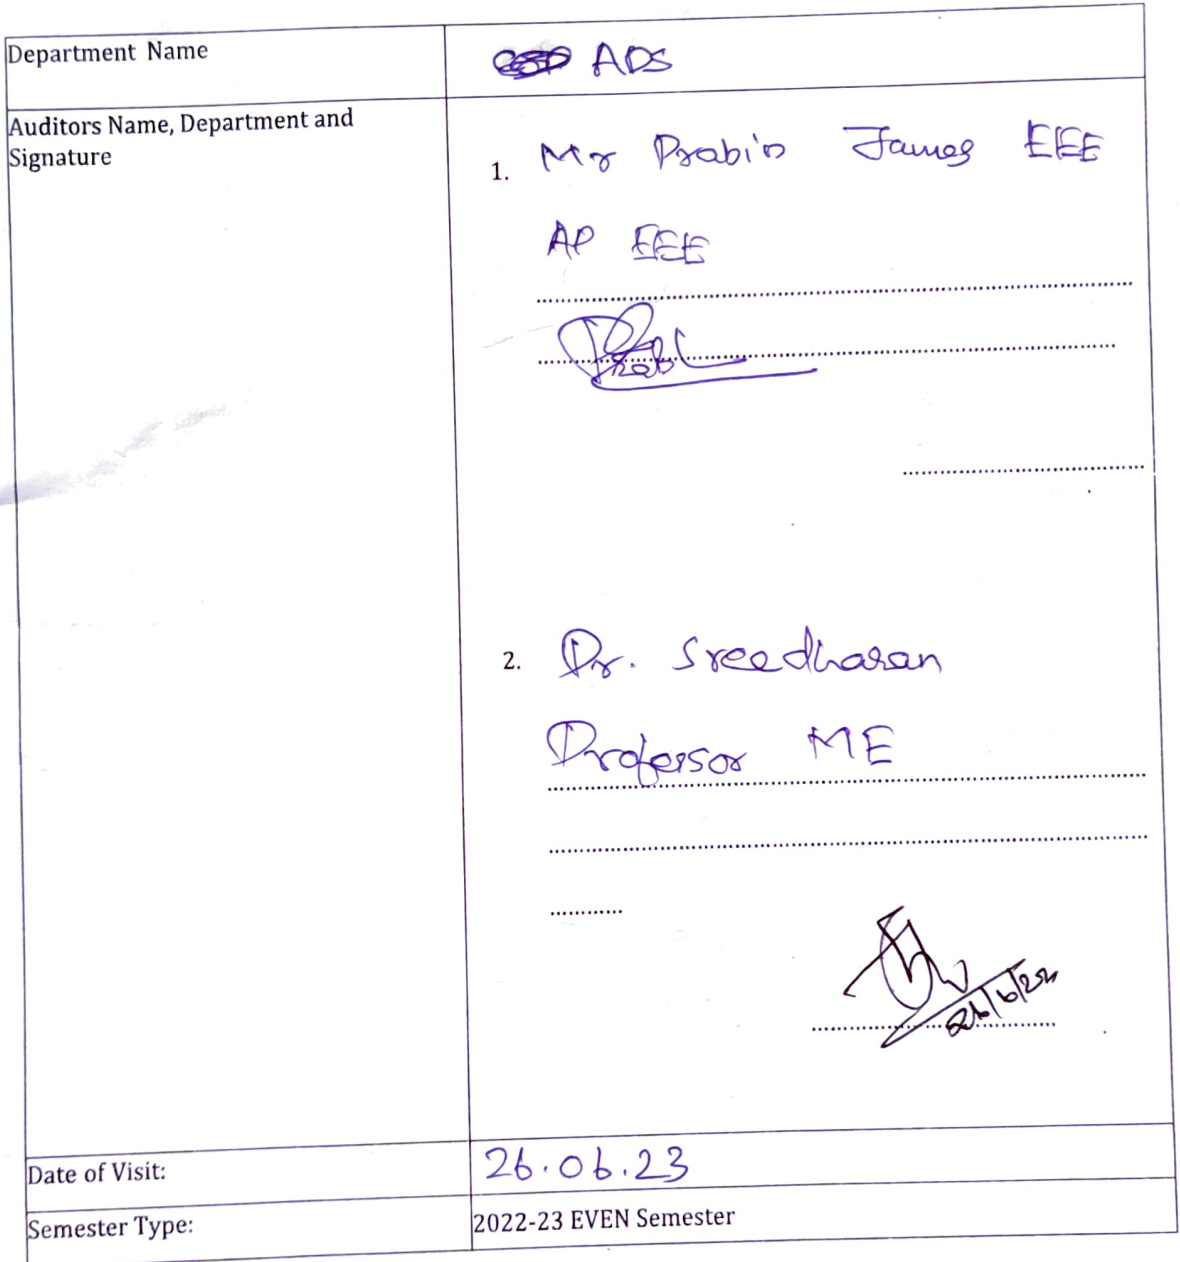 Department Name
ADS
Auditors Name, Department and
Signature
1. Mr Prabin James EEE
AP EEE
2. Dr. Sreedharan
Professor ME
Date of Visit:
26.06.23
Semester Type:
2022-23 EVEN Semester